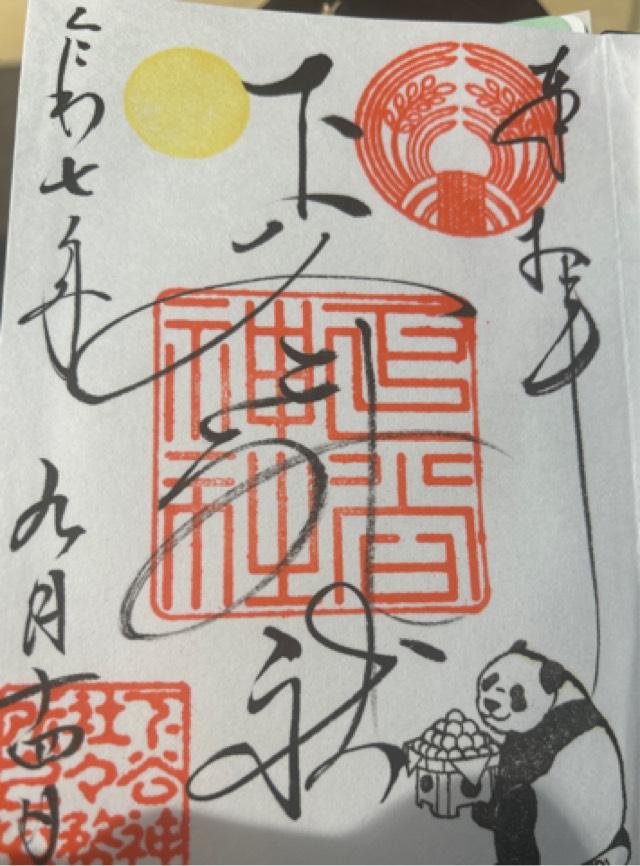 奉拝
下谷神社
下谷
神社
令和七年九月十四日
下谷神
社々務